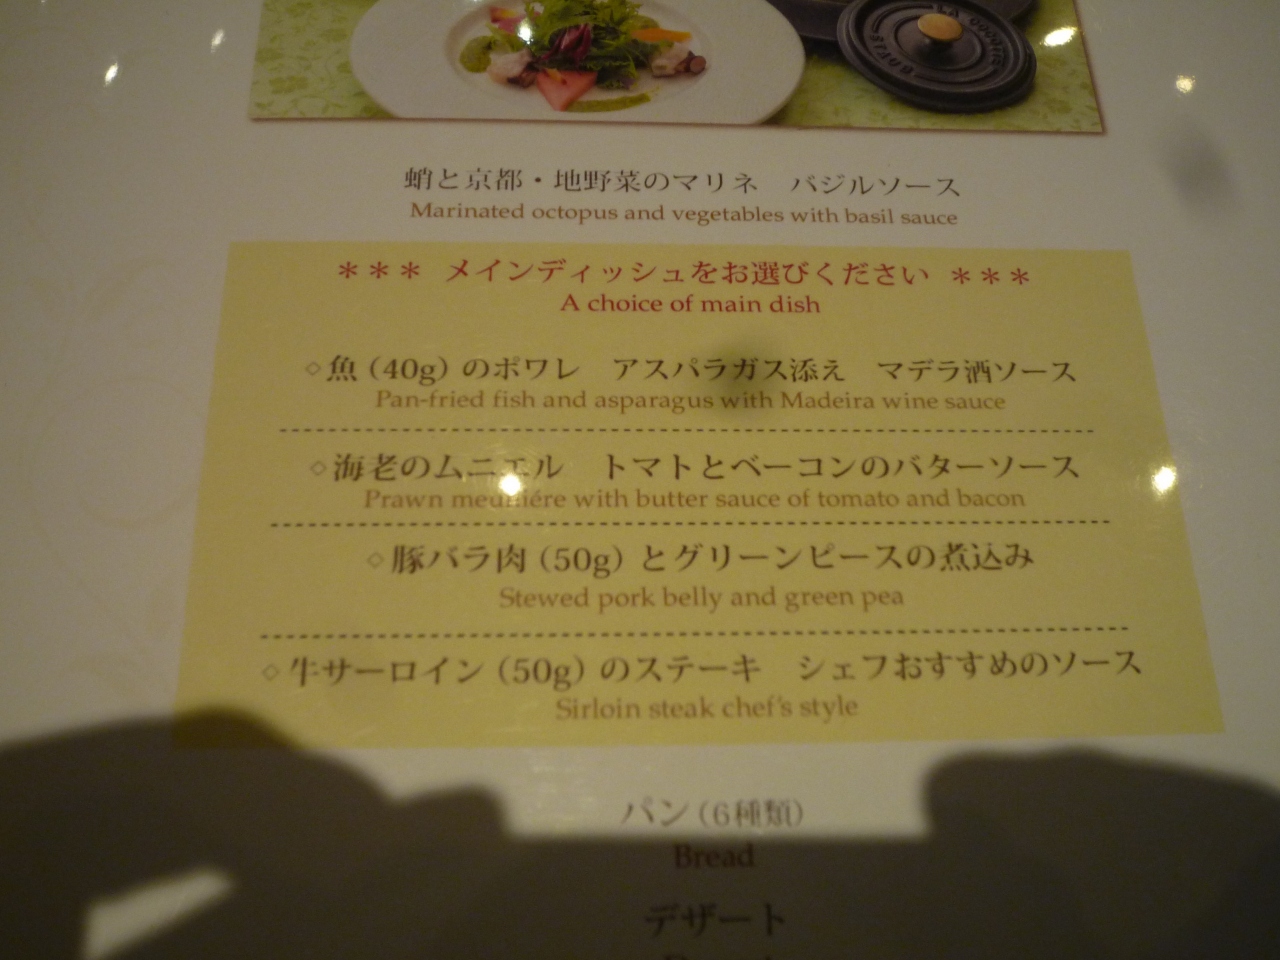 LA COCOTTE
STAUB
蛸と京都・地野菜のマリネ　バジルソース
Marinated octopus and vegetables with basil sauce
＊＊＊ メインディッシュをお選びください ＊＊＊
A choice of main dish
◇魚（40g）のポワレ　アスパラガス添え　マデラ酒ソース
Pan-fried fish and asparagus with Madeira wine sauce
◇海老のムニエル　トマトとベーコンのバターソース
Prawn meuniére with butter sauce of tomato and bacon
◇豚バラ肉（50g）とグリーンピースの煮込み
Stewed pork belly and green pea
◇牛サーロイン（50g）のステーキ　シェフおすすめのソース
Sirloin steak chef's style
パン（6種類）
Bread
デザート